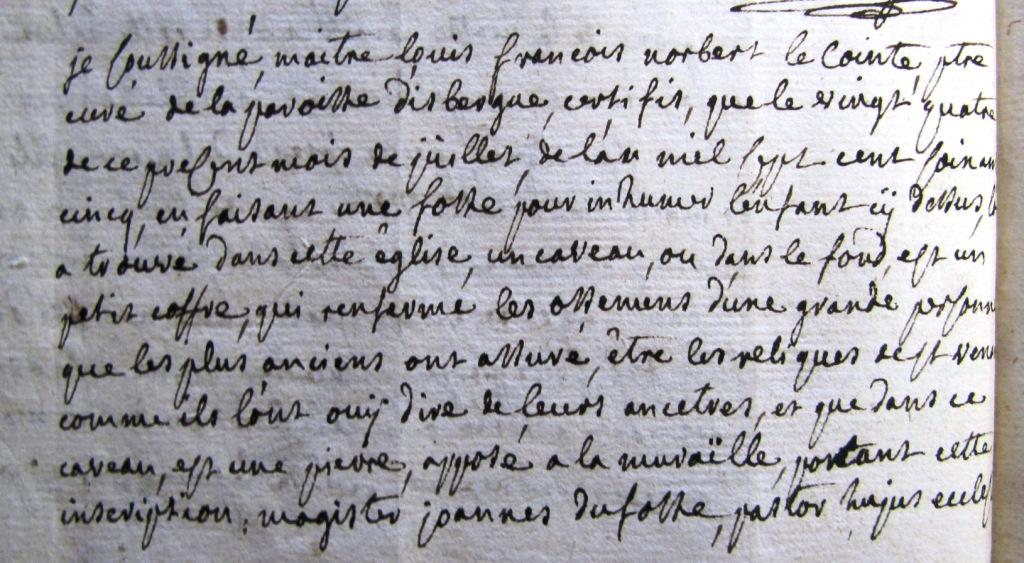 je soussigné, maitre louis francois norbert le Cointe, ptre
curé de la paroisse d'isbergue, certifis, que le vingt quatre
de ce present mois de juillet, de l'an miel sept cent soixan
cinq, en faisant une fosse pour inhumer l'enfant cÿ dessus,
a trouvé dans cette église, un caveau, ou dans le fond, est un
petit coffre, qui renferme les ossemens d'une grande personn
que les plus anciens ont assuré, être les reliques de st ven
comme ils l'ont ouÿ dire de leurs ancetres, et que dans ce
caveau, est une pierre, apposé a la muraïlle, portant cette
inscription, magister joannes dufosse, pastor hujus eccles